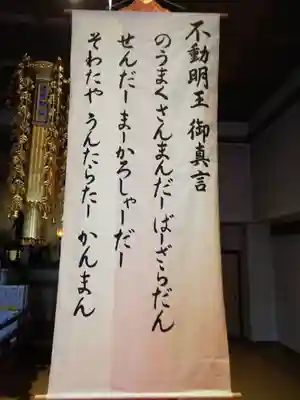 不動明王 御真言
のうまくさんまんだーばーざらだん
せんだーまーかろしゃーだー
そわたや うんたらたー かんまん